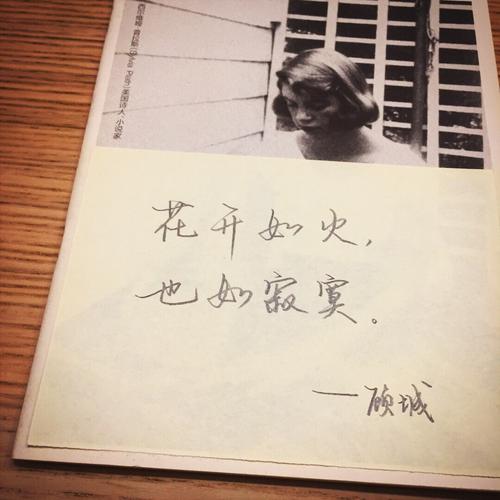 西尔维娅·普拉斯(Sylvia Plath)美国诗人、小说家
花开如火，
也如寂寞。
——顾城